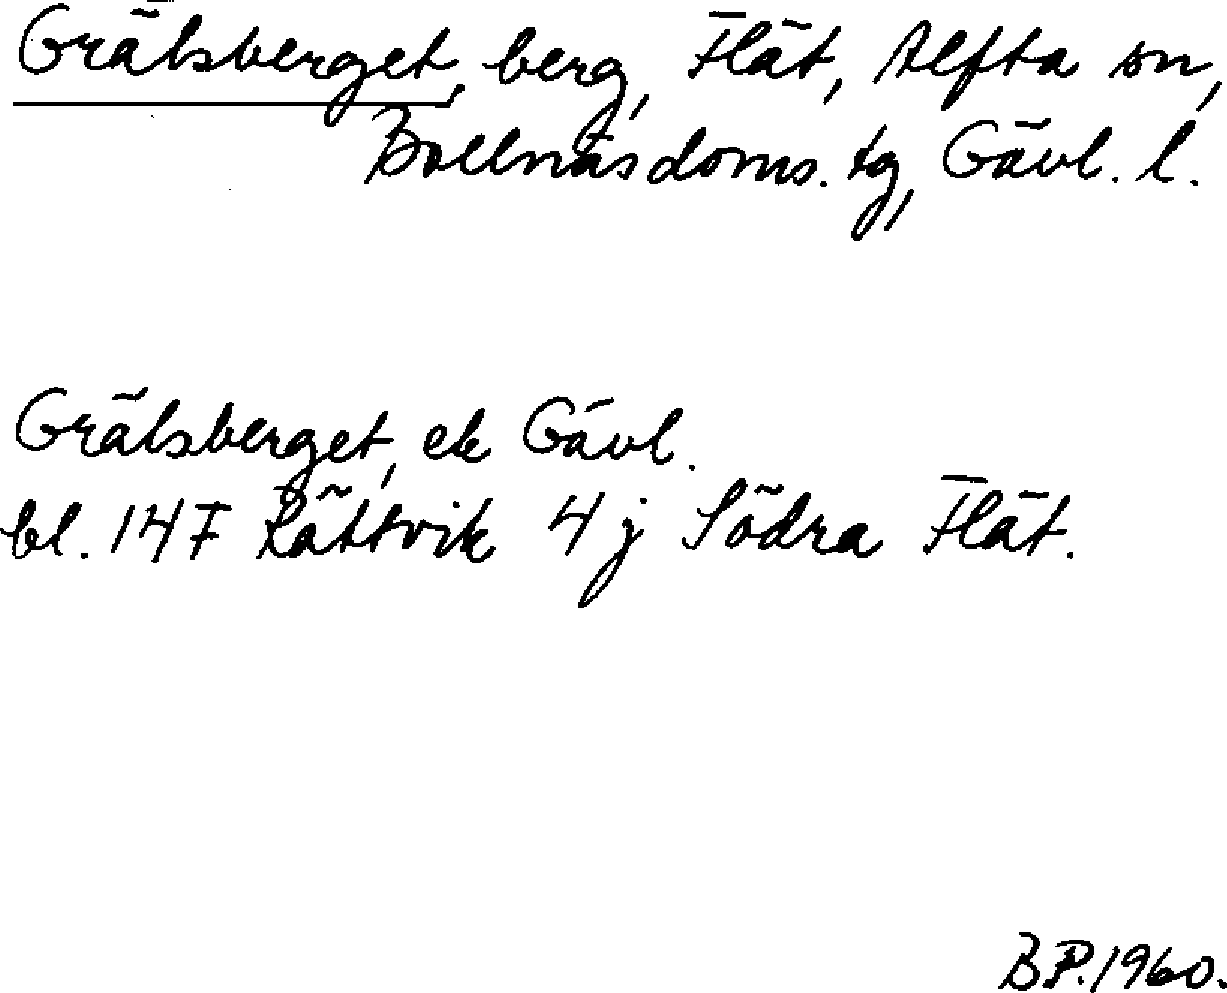 Grälsberget, berg, Flät, Alfta sn,
Bollnäs doms. tg, Gävl. l.
Grälsberget, ek Gävl.
bl. 14F Rättvik 4 j Södra Flät.
B.P. 1960.